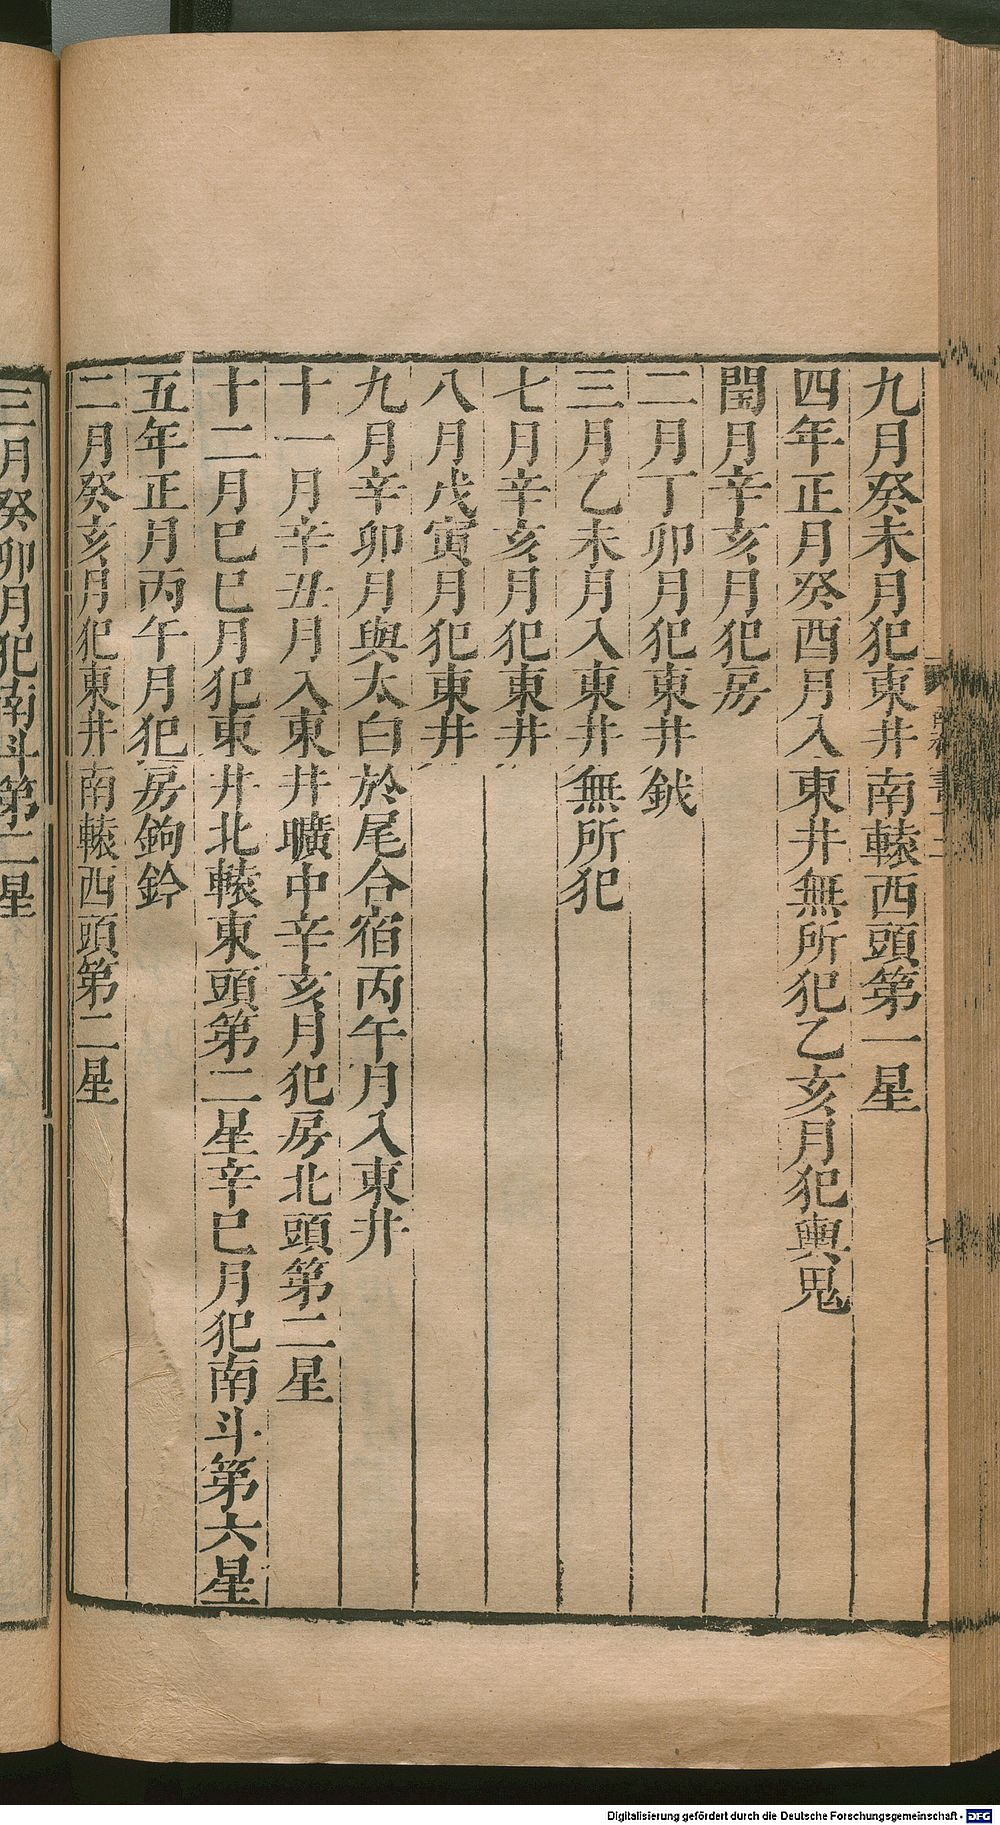 九月癸未月犯東井南轅西頭第一星
四年正月癸酉月入東井無所犯乙亥月犯輿鬼
閏月辛亥月犯房
二月丁卯月犯東井鉞
三月乙未月入東井無所犯
七月辛亥月犯東井
八月戊寅月犯東井
九月辛卯月與太白於尾合宿丙午月入東井
十一月辛丑月入東井曠中辛亥月犯房北頭第二星
十二月巳巳月犯東井北轅東頭第二星辛巳月犯南斗第六星
五年正月丙午月犯房鉤鈐
二月癸亥月犯東井南轅西頭第二星
三月癸卯月犯南斗第二星
Digitalisierung gefördert durch die Deutsche Forschungsgemeinschaft - DFG